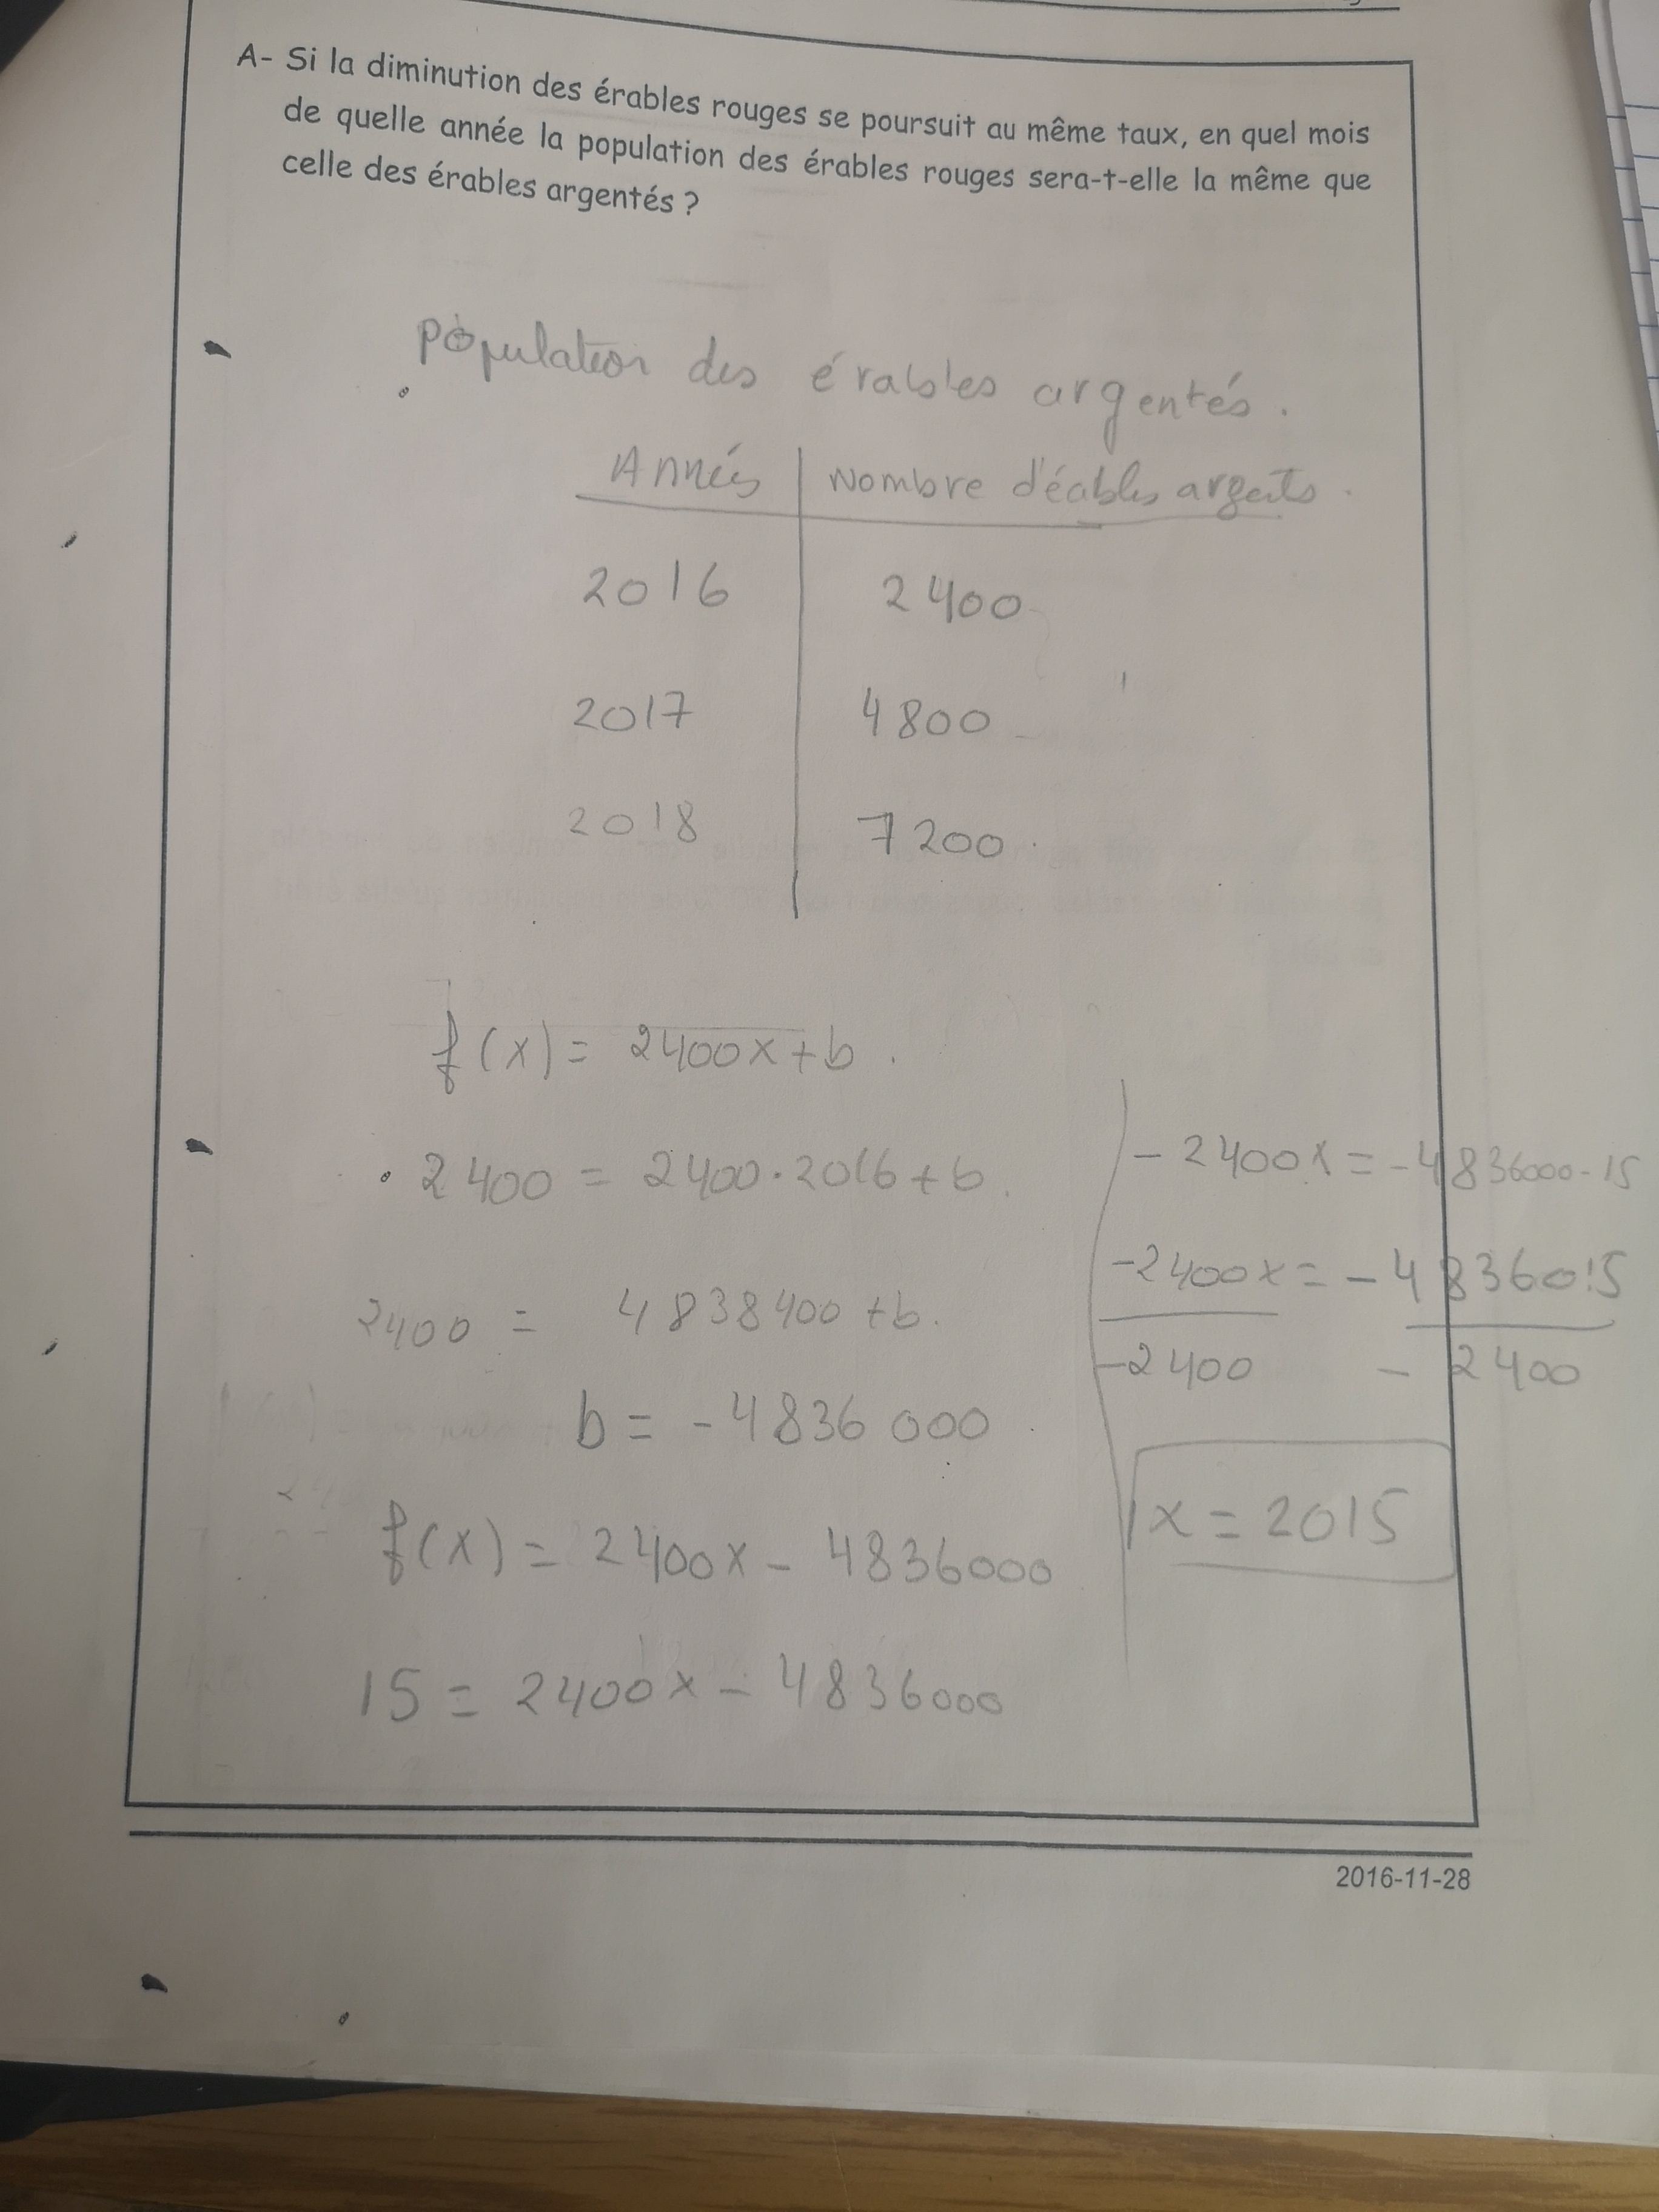 A- Si la diminution des érables rouges se poursuit au même taux, en quel mois
de quelle année la population des érables rouges sera-t-elle la même que
celle des érables argentés ?
Population des érables argentés.
Années | Nombre d'éables argents.
2016 | 2400
2017 | 4800
2018 | 7200
f(x) = 2400x + b.
2400 = 2400·2016 + b.
2400 = 4838400 + b.
b = -4836 000
f(x) = 2400x - 4836000
15 = 2400x - 4836000
-2400x = -4836000-15
-2400x = -4836015
-2400 -2400
x = 2015
2016-11-28